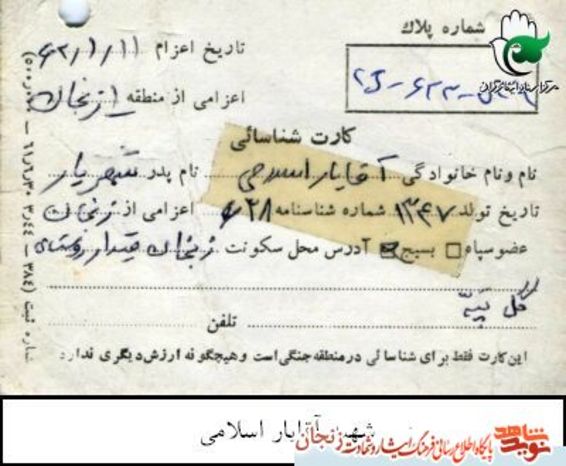 شماره پلاك
تاریخ اعزام ۶۲/۱/۱۱
اعزامی از منطقه زنجان
مرکز اسناد ایثارگران
کارت شناسائی
نام و نام خانوادگی آقایار اسلامی نام پدر شهریار
تاریخ تولد ۱۳۴۷ شماره شناسنامه ۲۸ اعزامی از زنجان
عضو سپاه بسیج آدرس محل سکونت زنجان قیدار روستای
گل تپه
تلفن
این کارت فقط برای شناسائی در منطقه جنگی است و هیچگونه ارزش دیگری ندارد
شهید آقایار اسلامی
نوید شاهد
پایگاه اطلاع رسانی فرهنگ ایثار و شهادت زنجان